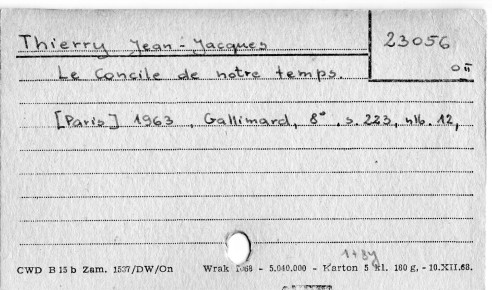 Thierry Jean-Jacques
23056
oп
Le Concile de notre temps.
[Paris] 1963, Gallimard, 8°, s. 223, nlb. 12,
CWD B 15 b Zam. 1537/DW/On Wrak 1968 - 5.040.000 - Karton 5 kl. 180 g, - 10.XII.68.